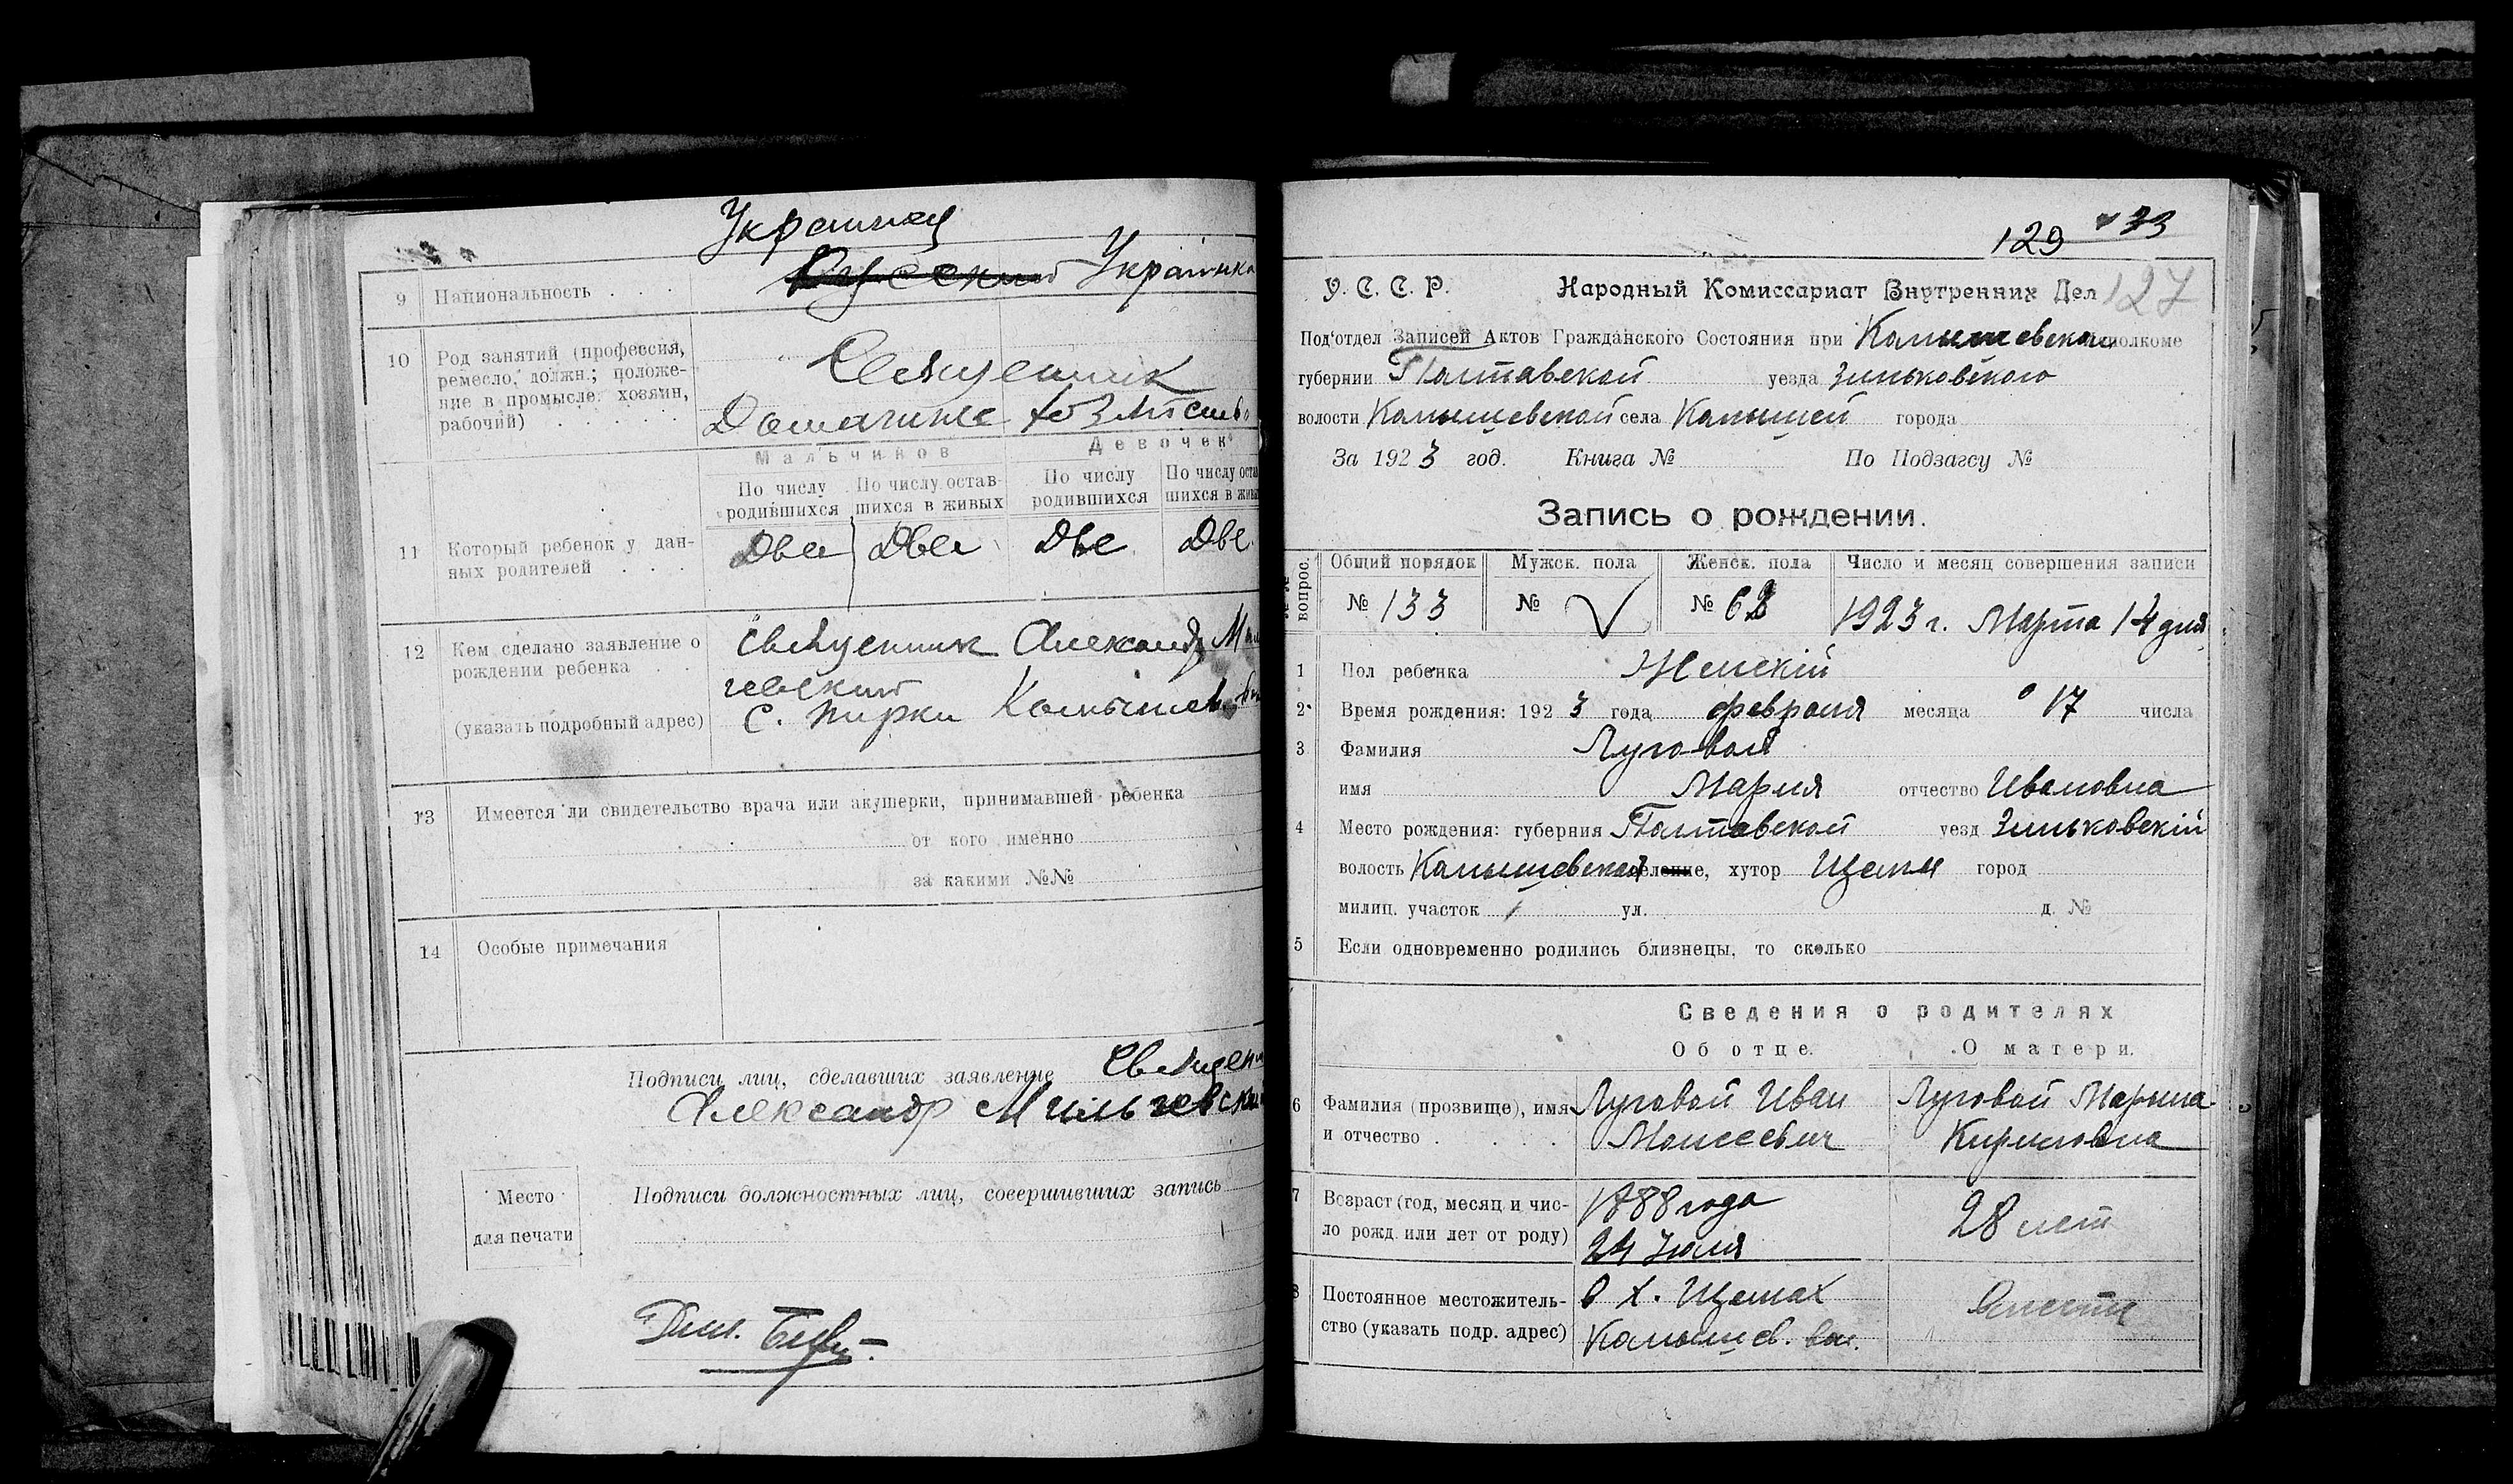 Украинец
9 Национальность . . Русский Украинка
10 Род занятий (профессия,
ремесло, должн.; положе-
ние в промысле: хозяин,
рабочий) . . . . .
Священник
Домашнее хозяйство
Мальчиков Девочек
По числу родившихся По числу остав-шихся в живых По числу родившихся По числу оста шихся в жив
11 Который ребенок у дан-
ных родителей . . .
Два Два Две Две
12 Кем сделано заявление о
рождении ребенка . .
(указать подробный адрес)
Священник Александр Миль
чевский
С. Пирки
13 Имеется ли свидетельство врача или акушерки, принимавшей ребенка
от кого именно
за какими №№
14 Особые примечания
Подписи лиц, сделавших заявление Священ
Александр Мильчевский
Место
для печати
Подписи должностных лиц, совершивших запись
129 133
127
У. С. С. Р. Народный Комиссариат Внутренних Дел
Под'отдел Записей Актов Гражданского Состояния при Камышевском исполкоме
губернии Полтавской уезда Зиньковского
волости Камышевской села Камышей города
За 1923 год. Книга № По Подзагсу №
Запись о рождении.
№№ вопрос. Общий порядок Мужск. пола Женск. пола Число и месяц совершения записи
№ 133 № № 62 1923 г. Марта 14 дня
1 Пол ребенка Женскій
2 Время рождения: 1923 года февраля месяца 17 числа
3 Фамилия Луговая
имя Мария отчество Ивановна
4 Место рождения: губерния Полтавской уезд Зиньковскій
волость Камышевской селение, хутор Щемы город
милиц. участок 1 ул. д. №
5 Если одновременно родились близнецы, то сколько
Сведения о родителях
Об отце. О матери.
6 Фамилия (прозвище), имя Луговой Иван Луговой Марина
и отчество . . . . Моисеевич Кириловна
7 Возраст (год, месяц и чис- 1888 года 28 лет
ло рожд. или лет от роду) 24 Июля
8 Постоянное местожитель- в х. Щемах вместе
ство (указать подр. адрес) Камышев. вол.